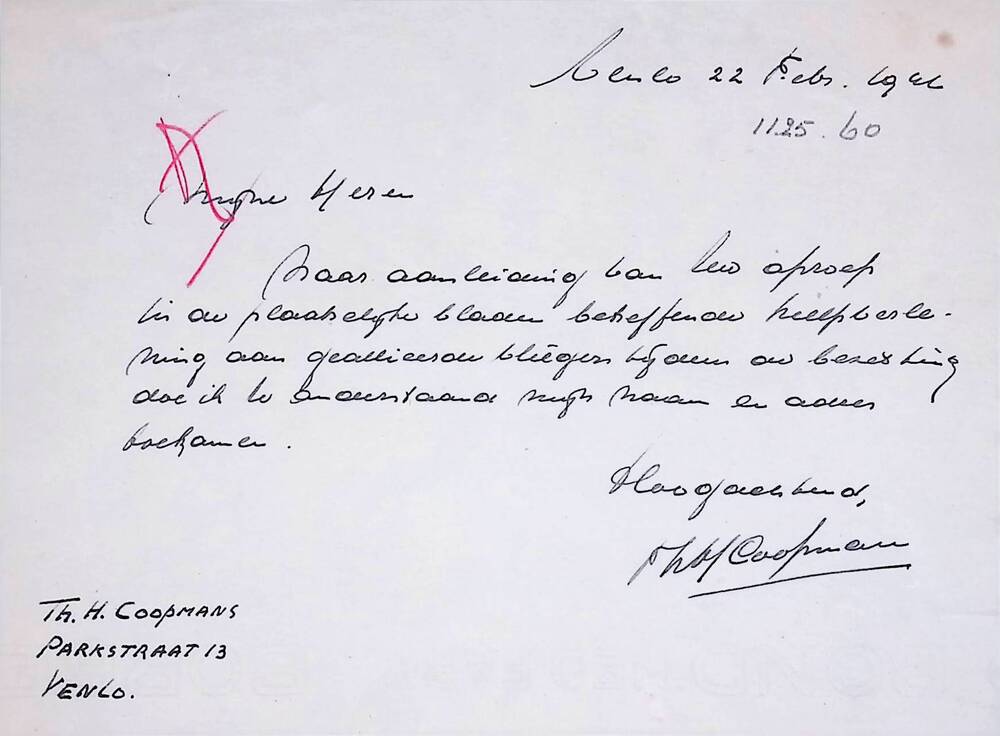 Venlo 22 Febr. 1946
1125.60
Mijne Heren
Naar aanleiding van Uw oproep
in de plaatselijke bladen betreffende hulpverle-
ning aan geallieerde vliegers tijdens de bezetting
doe ik U onderstaand mijn naam en adres
toekomen.
Hoogachtend,
ThHCoopmans
TH. H. COOPMANS
PARKSTRAAT 13
VENLO.